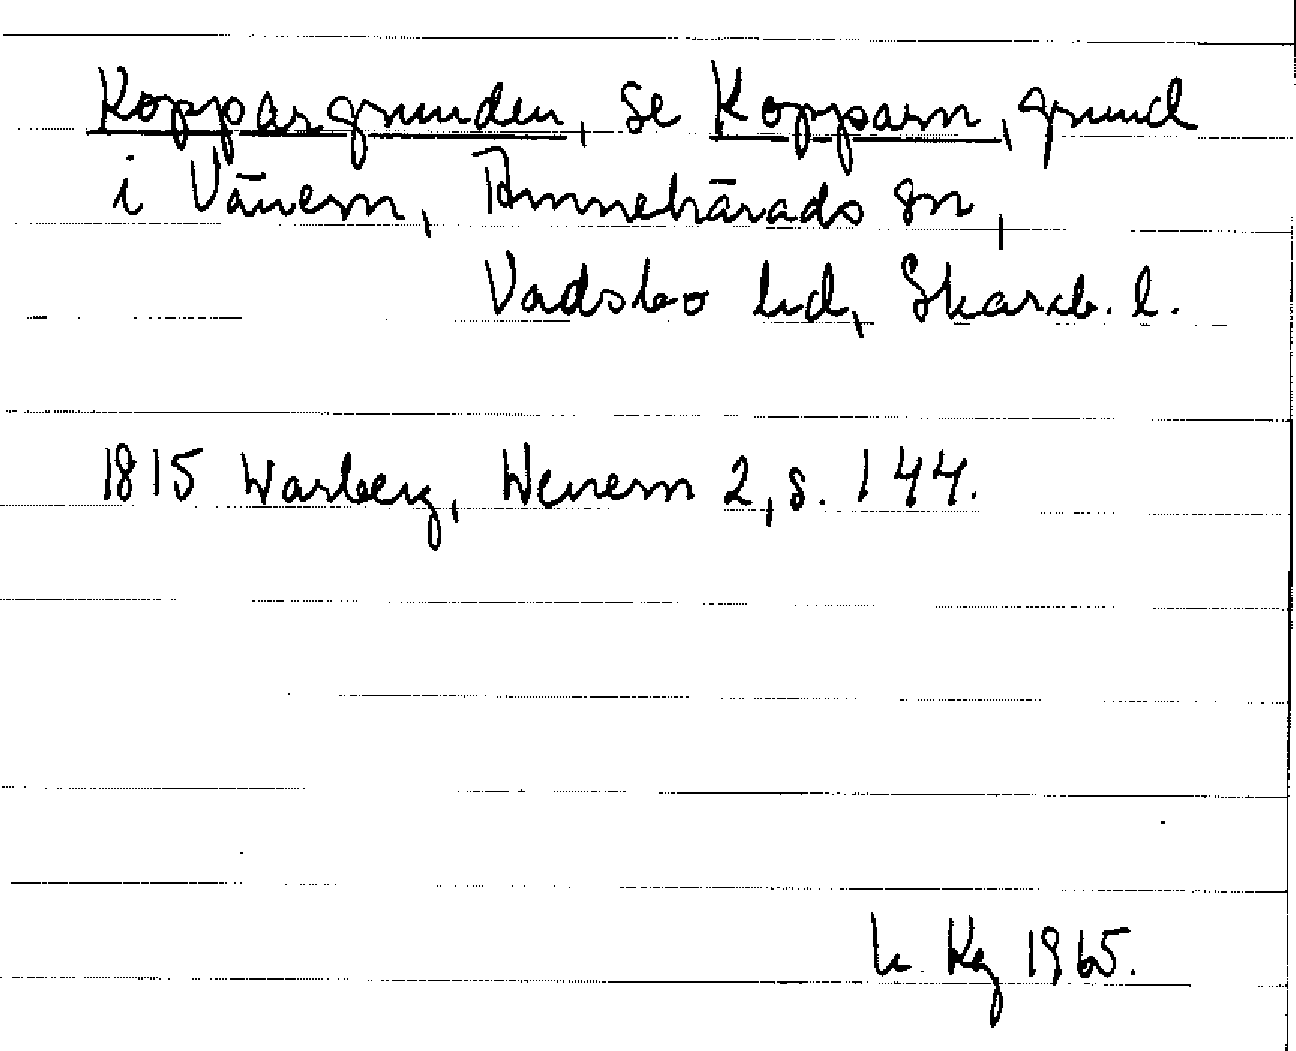 Koppargrunden, se Kopparn, grund
i Vänern, Amnehärads sn,
Vadsbo hd, Skarab. l.
1815 Warberg, Wenern 2, s. 144.
Kg 1965.